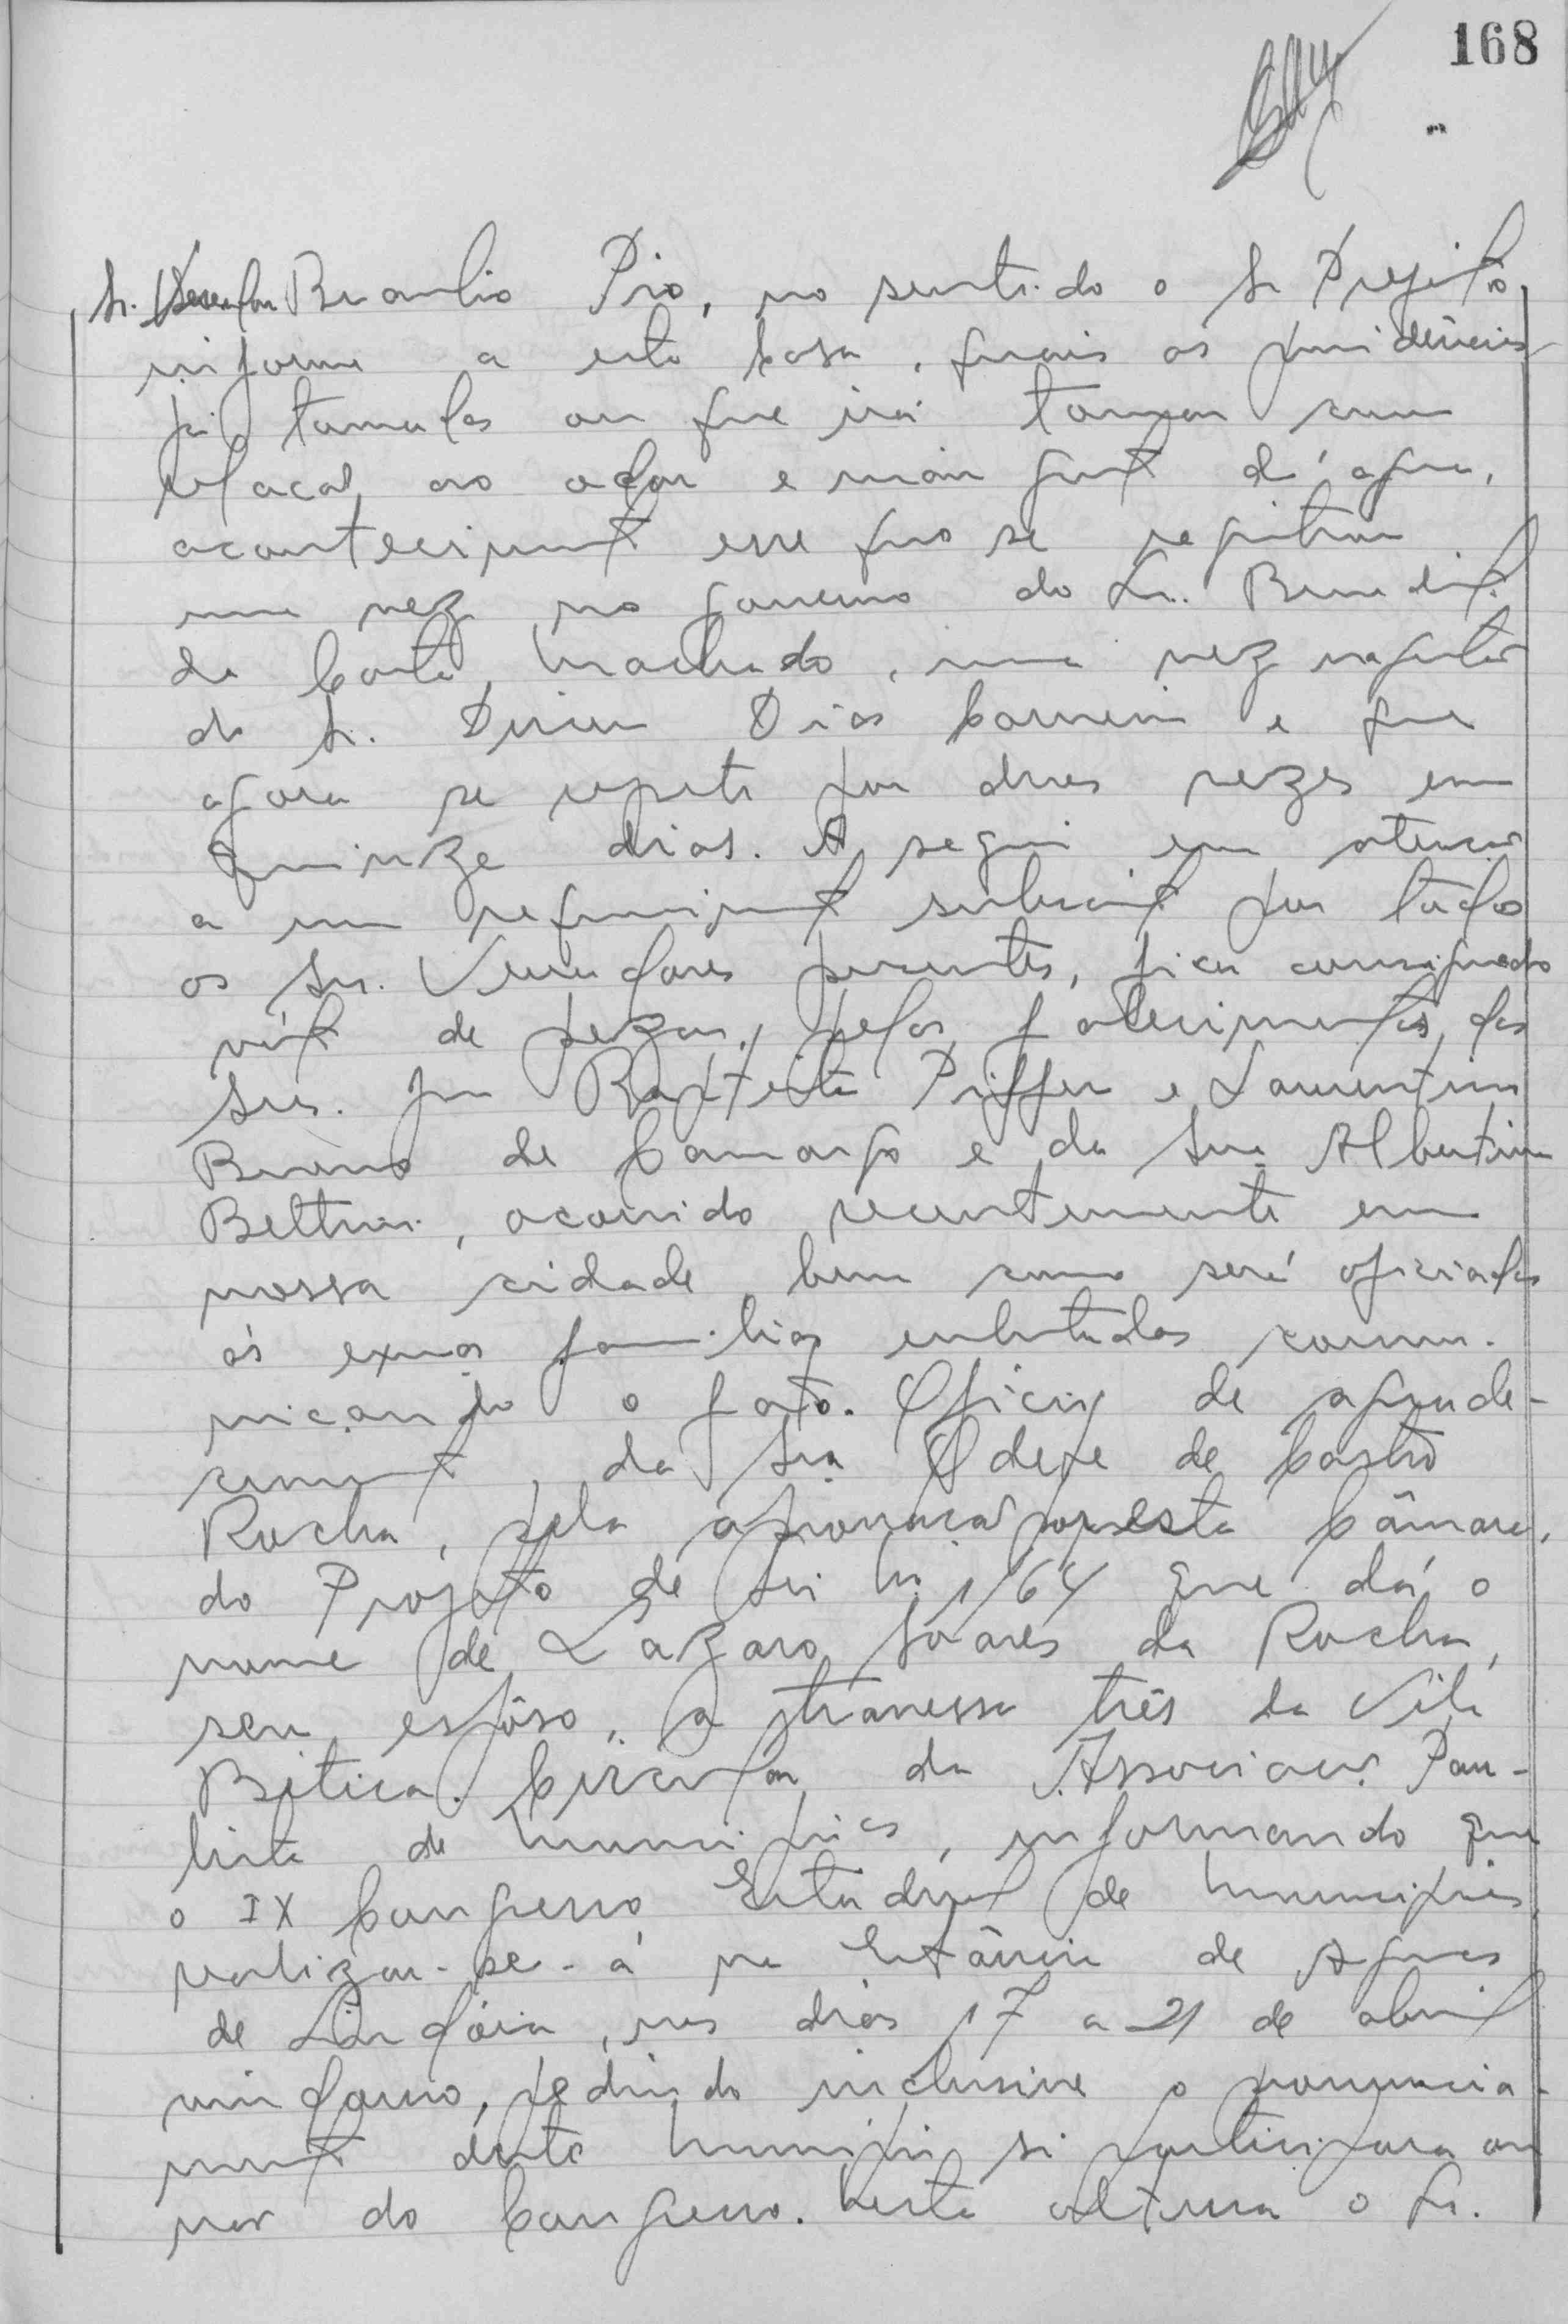 168
Sr. Vereador Braulio Pio, no sentido o Sr Prefeito
informe a esta Casa, quais as providências
já tomadas ou que irá tomar com
relação ao odor e mau gost d'agua,
aconteciment esse que se registrou
uma vez no governo do Sr. Benedit
da Costa Machado, uma vez na gestão
do Sr. Dirceu Dias Carneiro e que
agora se repete por duas vezes em
quinze dias. A seguir em atenção
a um requeriment subscrit por todos
os Srs. Vereadores presentes, fica consignado
vot de pezar, pelos falecimentos dos
Srs. João Baptista Piffer e Laurentino
Bueno de Camargo e da Sra Albertina
Beltrami, ocorrido recentemente em
nossa cidade bem como será oficiados
ás exmas familias enlutadas comu-
nicando o fato. Oficio de agrade-
ciment, da Sra Odete de Castro
Rocha, pela aprovação por esta Câmara,
do Projeto de Lei Nº 1/64 que dá o
nome de Lázaro Soares da Rocha,
seu espôso, a travessa três da Vila
Bitica. Circular da Associação Pau-
lista de Municipios, informando que
o IX Congresso Estadual de Municipios
realizar-se-á na Estância de Aguas
de Lindóia, nos dias 17 a 21 de abril
vindouro, pedindo inclusive o pronuncia-
ment deste Municipio si participara ou
não do Congresso. Nesta altura o Sr.